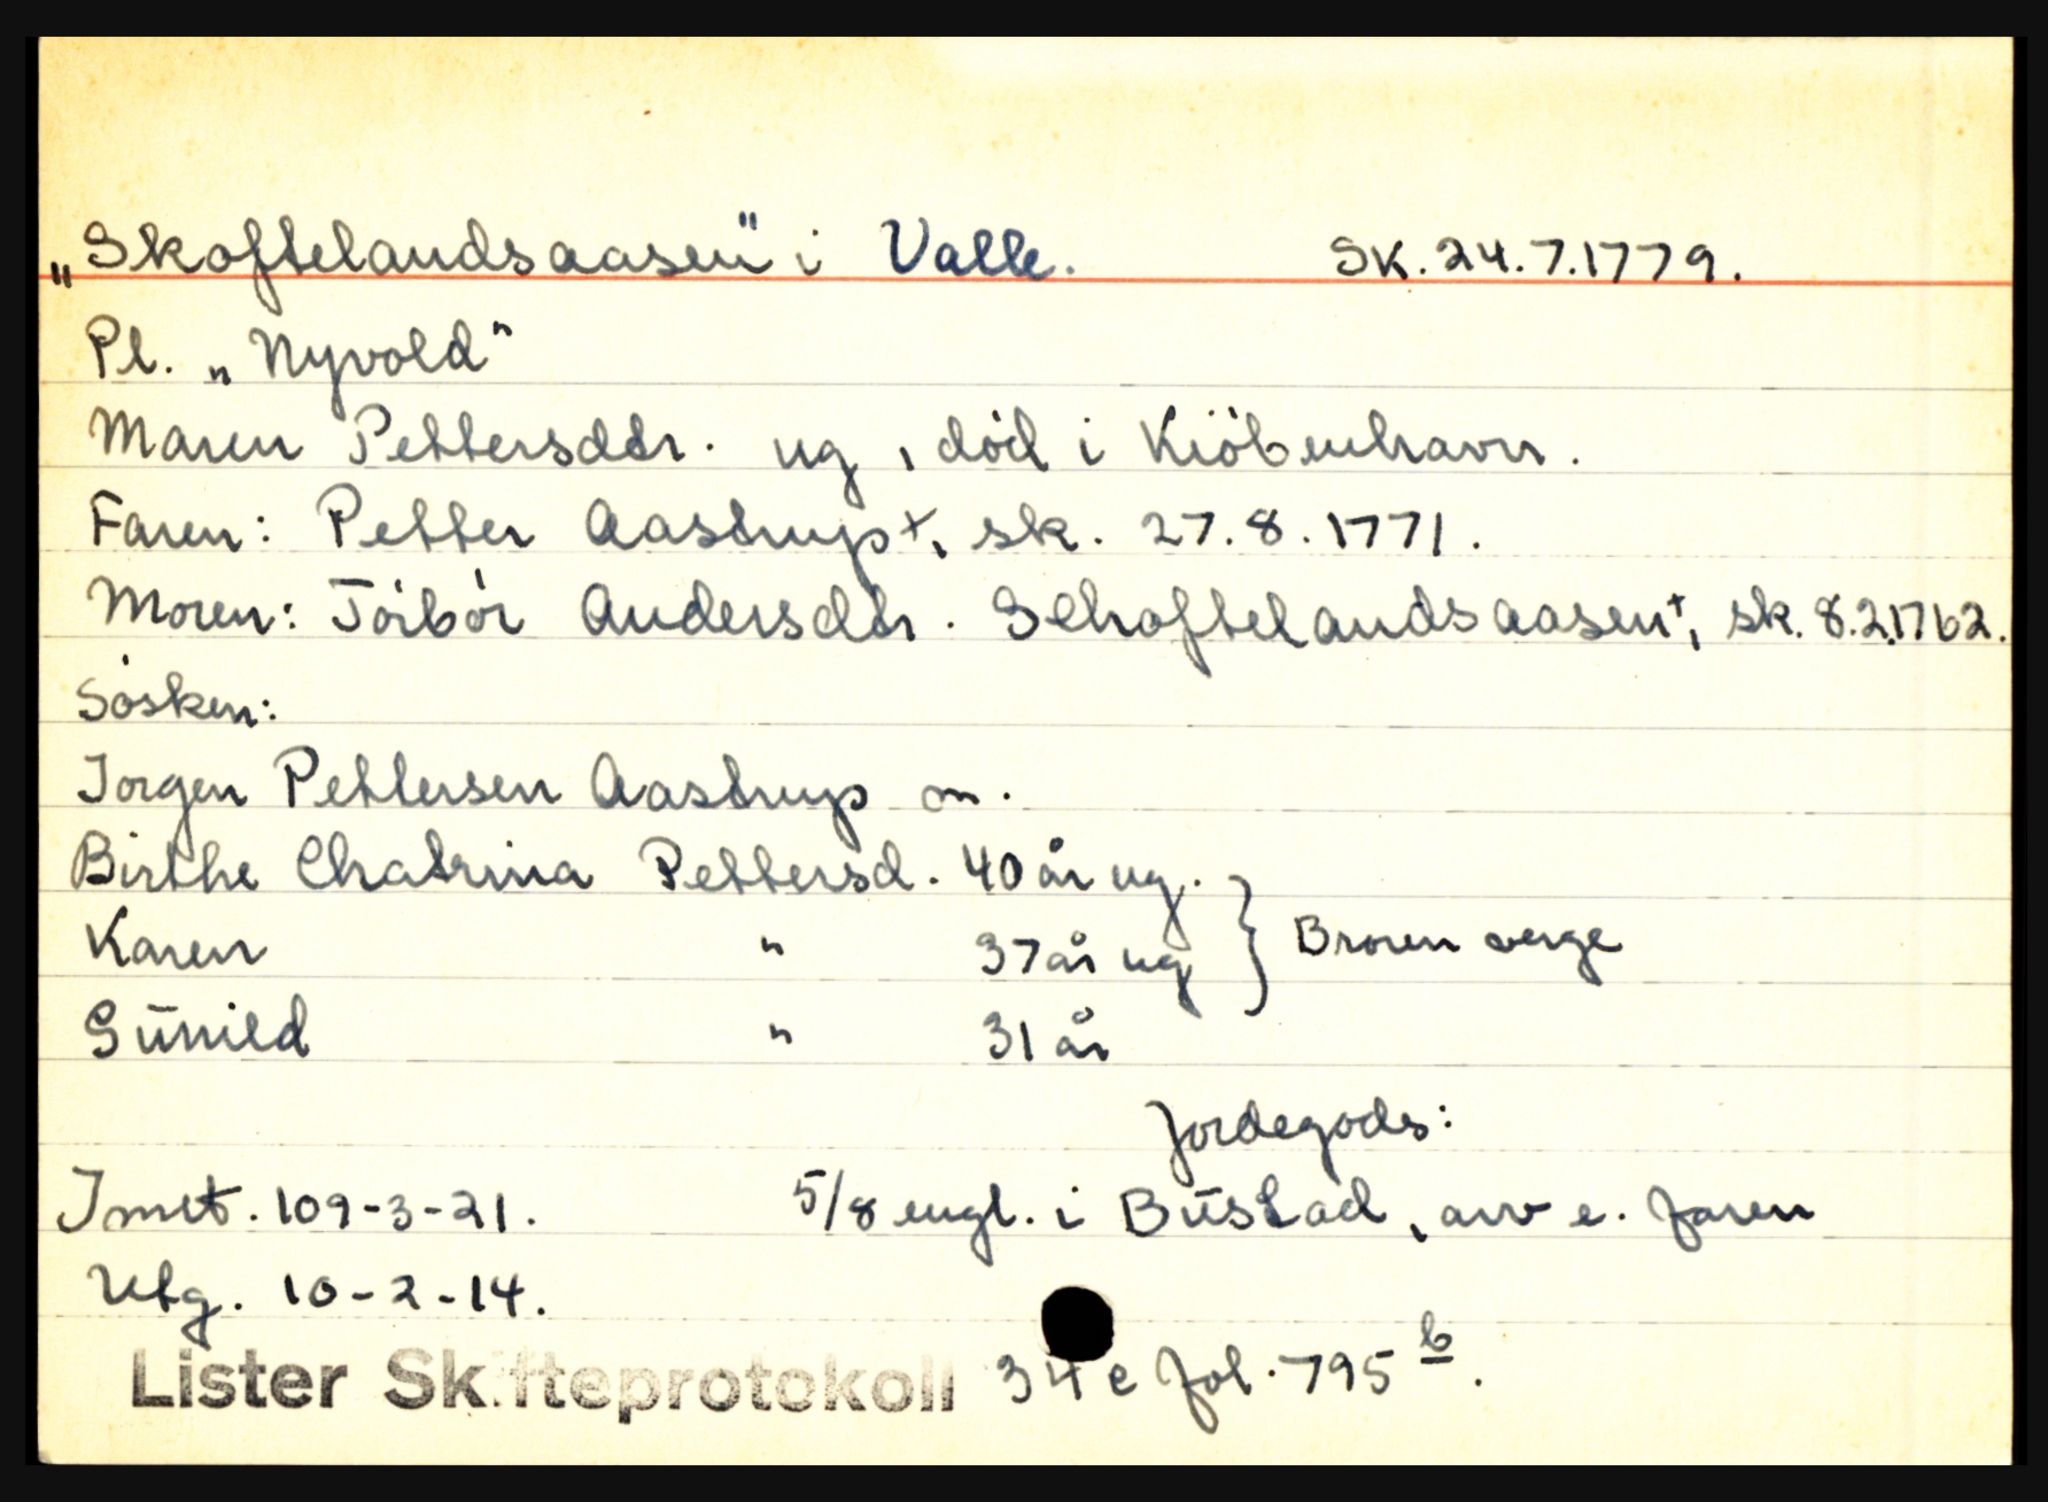 „Skoftelandsaasen" i Valle. Sk. 24.7.1779.
Pl. „Nyvold"
Maren Pettersdtr. ug, död i Kiöbenhavn.
Faren: Petter Aastrup+, sk. 27.8.1771.
Moren: Törbör Andersdtr. Schoftelandsaasen+, sk. 8.2.1762.
Sösken:
Jorgen Pettersen Aastrup m.
Birthe Chatrina Pettersd. 40 år ug.
Karen " 37 år ug } Broren verge
Gūnild " 31 år
Jordegods:
Imt. 109-3-21. 5/8 engl. i Būstad, arv e. faren
Utg. 10-2-14.
Lister Skifteprotokoll 34 e fol. 795 b.